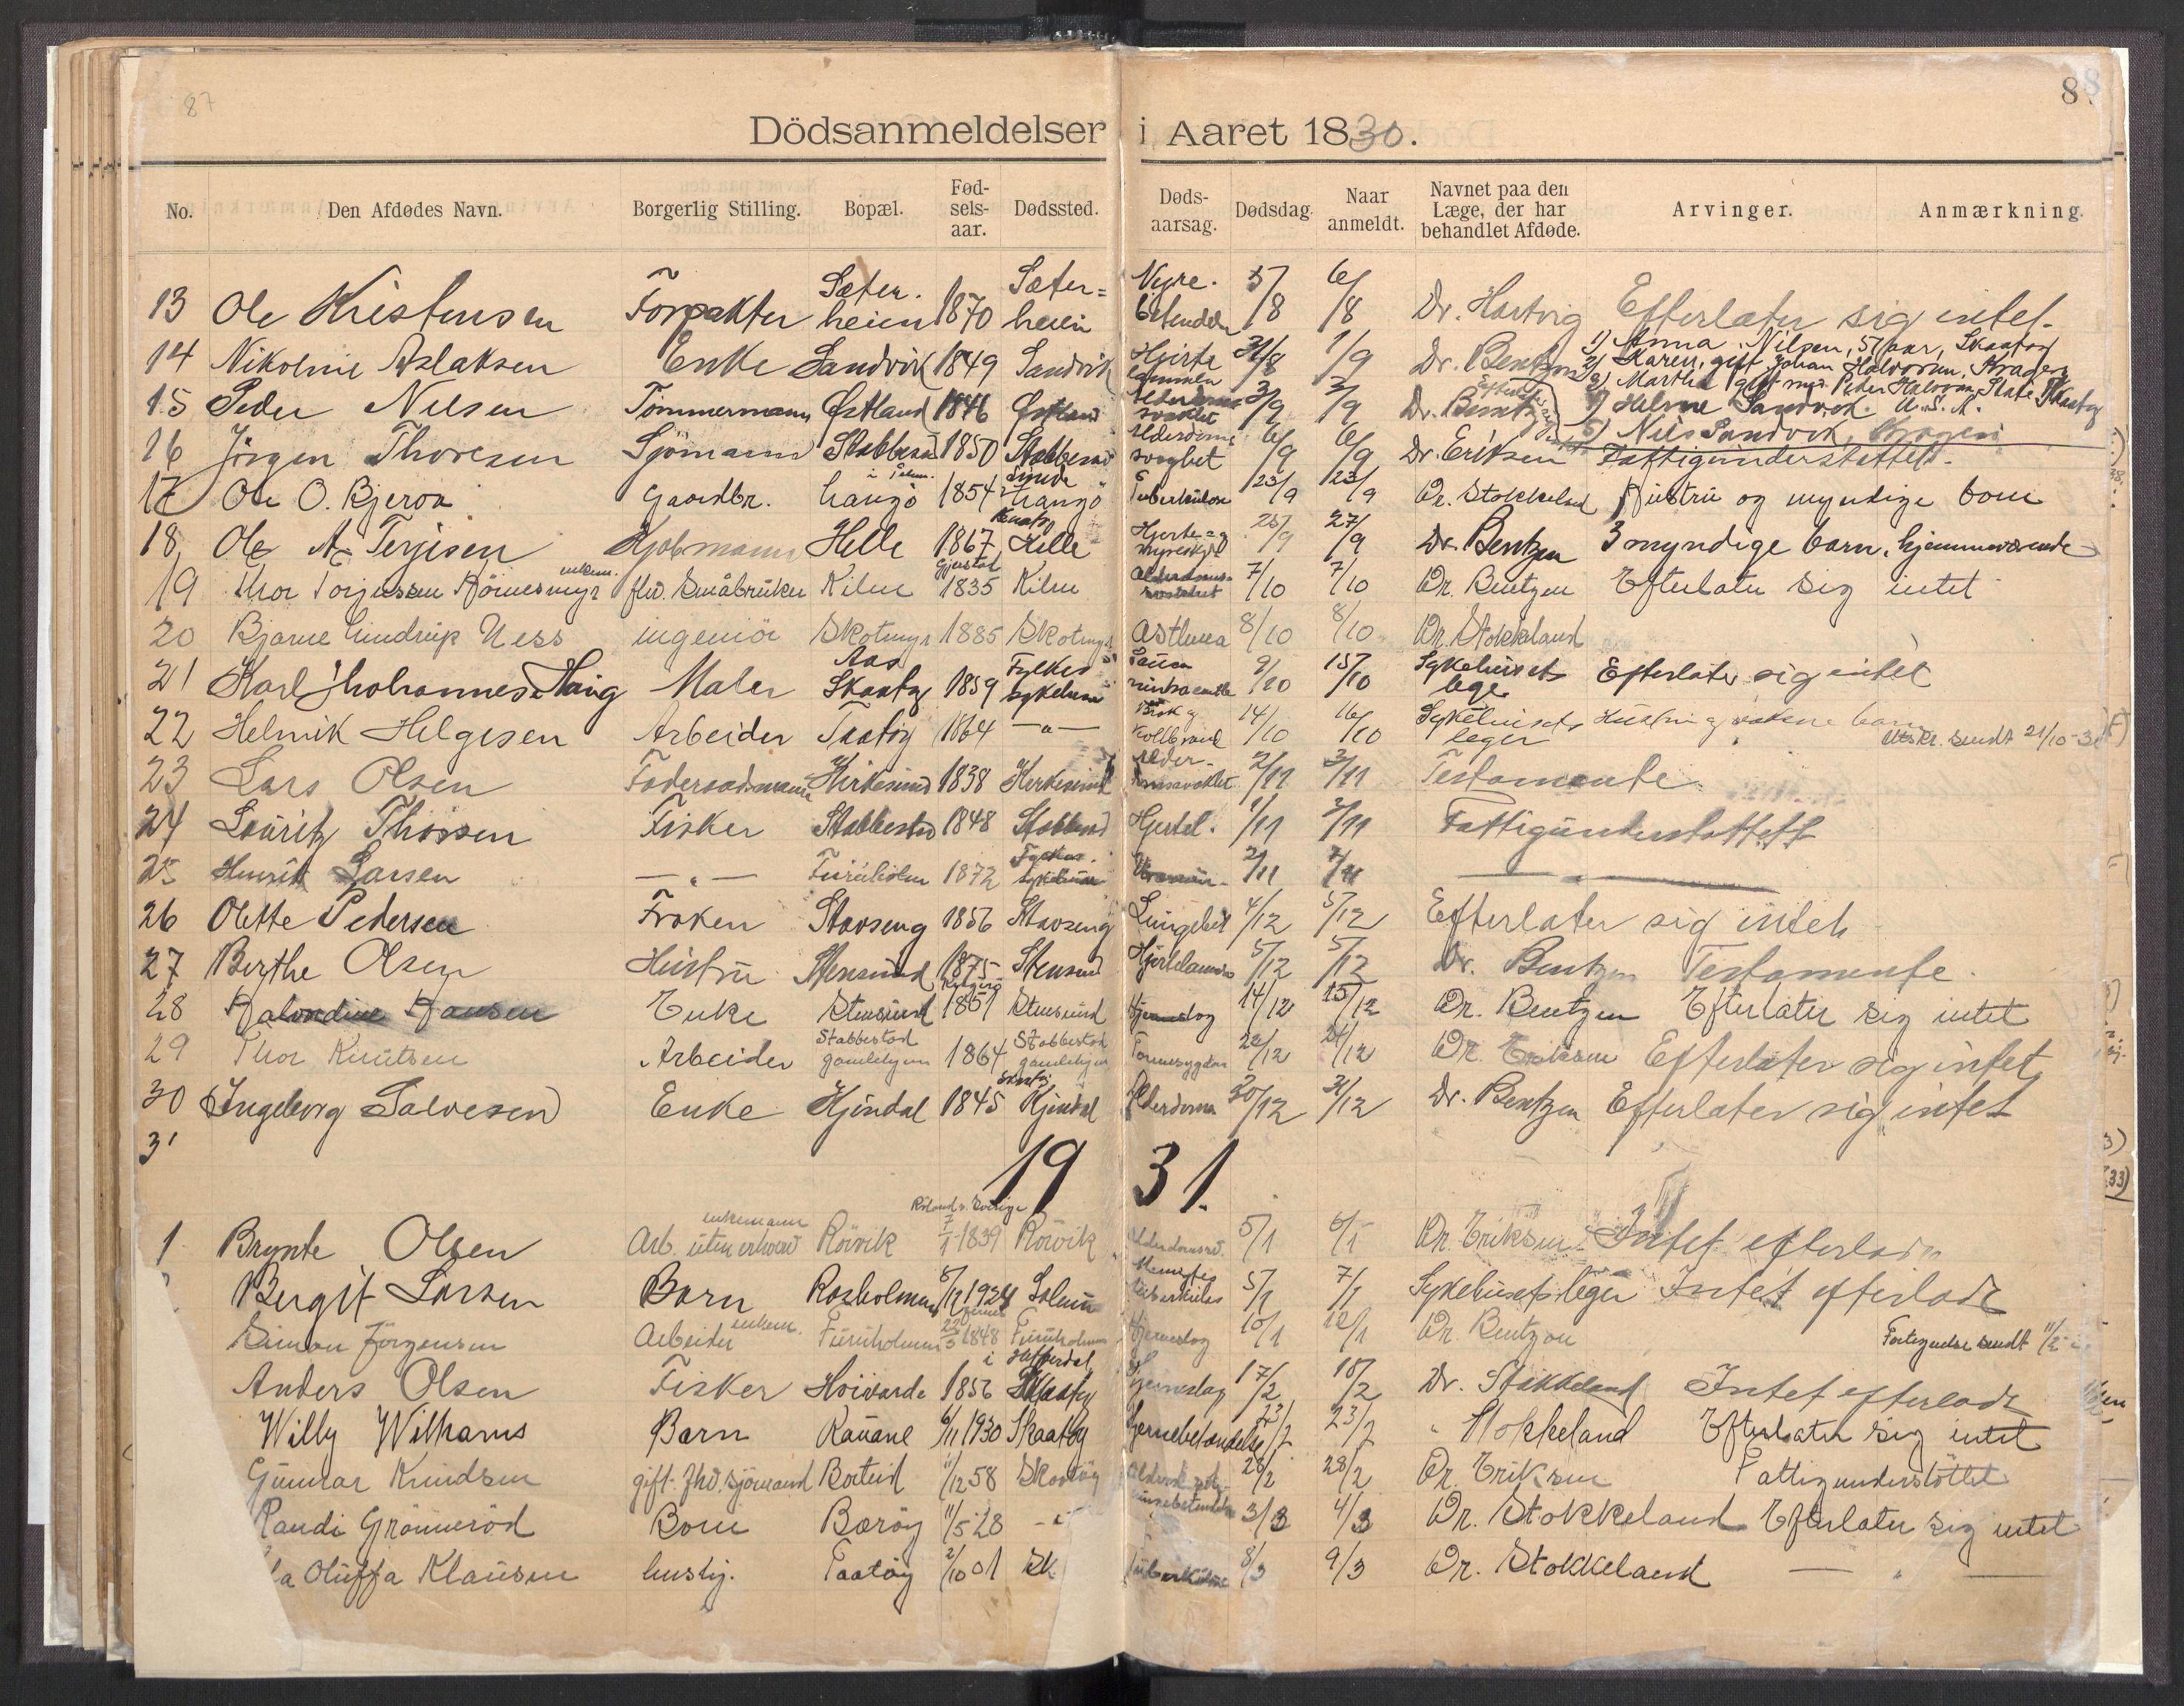 87
88
Dödsanmeldelser i Aaret 1830.
No. Den Afdødes Navn. Borgerlig Stilling. Bopæl. Fød-sels-aar. Dødssted. Døds-aarsag. Dødsdag. Naar anmeldt. Navnet paa den Læge, der har behandlet Afdøde. Arvinger. Anmærkning.
13 Ole Kristensen Forpakter Sæterheien 1870 Sæter=heien Nyre- 5/8 6/8 Dr. Hartvig Efterlater sig intet.
14 Nikoline Aslaksen Enke Sandvik 1849 Sandvik Hjerte 31/8 1/9 Dr. Bentzen 1) Anna Nilsen, 57 aar, Skaatøy
2) Karen, gift Johan Halvorsen, Kragerø
3) Marthe gift med Peder Halvorsen, Skaatøy
15 Peder Nilsen Tømmermann Østland 1846 Østland svakhet 3/9 3/9 Dr. Bentzen 4) Helene Sandvik. U.S.A.
5) Nils Sandvik, Kragerø
16 Jörgen Thoresen Sjömann Stabbestad 1850 Stabbestad Alderdoms svaghet 6/9 6/9 Dr. Eriksen Fattigunderstøttet.
17 Ole O. Bjerva Gaardbr. Langö 1854 Langö Tuberkulose 23/9 23/9 Dr. Stokkeland Hustru og myndige born
18 Ole A. Terjesen Kjøbmann Helle 1867 Helle Hjerte og 25/9 27/9 Dr. Bentzen 3 myndige barn, hjemmeværende
19 Thor Torjussen Hörnesmyr enkem. fhv. Småbruker Kilen Gjerstad 1835 Kilen Alderdoms- 7/10 7/10 Dr. Bentzen Efterlater sig intet
20 Bjarne Lindrup Ness ingeniör Skotmyr 1885 Skotmyr Asthma 8/10 8/10 Dr. Stokkeland
21 Karl Johannes Haug Maler Aas Skaatøy 1859 Fylkes sykehus 9/10 15/10 Sykehusets lege Efterlater sig intet
22 Helmik Helgesen Arbeider Taatøy 1864 —"— Kolbrand 14/10 16/10 Sykehusets leger Hustru og voksne barn Utskr. sendt 21/10-30
23 Lars Olsen Föderaadsmann Kirkesund 1838 Kirkesund Alderdomssvakhet 2/11 3/11 Testamente.
24 Lauritz Thossen Fisker Stabbestad 1848 Stabbestad Hjertel. 1/11 3/11 Fattigunderstøttet
25 Henrik Larsen —"— Furuholm 1872 Fylkes sykehus 2/11 7/11 —"—
26 Olette Pedersen Froken Stavseng 1856 Stavseng Lungebet 4/12 5/12 Efterlater sig intet
27 Berthe Olsen Hustru Stensund 1875 Stensund Hjertelammelse 5/12 5/12 Dr. Bentzen Testamente.
28 Halvordine Hansen Enke Stensund 1851 Stensund Hjerneslag 14/12 15/12 Dr. Bentzen Efterlater sig intet
29 Thor Knutsen Arbeider Stabbestad gamlehjem 1864 Stabbestad gamlehjem 22/12 24/12 Dr. Eriksen Efterlater sig intet
30 Ingeborg Salvesen Enke Kjöndal 1845 Skaatøy Kjöndal Alderdoms 30/12 31/12 Dr. Bentzen Efterlater sig intet
31
1931.
1 Brynte Olsen enkemann Arb. uten erhverv Rörvik 7/1 1839 Rörvik 5/1 6/1 Dr. Eriksen Intet efterladt
Bergit Larsen Barn Rosholmen 1924 Tuberkulös 5/1 7/1 Sykehusets leger Intet efterladt
Simon Jörgensen Arbeider enkem. Furuholmen 22/3 1848 Furuholmen Hjerneslag 10/1 12/1 Dr. Bentzon Fortegnelse sendt 11/2
Anders Olsen Fisker 1856 Skaatøy Hjerneslag 17/2 18/2 Dr. Stokkeland Intet efterladt
Willy Wilhams Barn Kauane 6/11 1930 Skaatøy Hjernebetændelse 23/2 23/2 " Stokkeland Efterlater sig intet
Gunnar Knudsen gift fhv. sjömand 11/12 58 Skaatøy 28/2 28/2 Dr. Eriksen Fattigunderstöttet
Randi Grönneröd Barn Barøy 11/5-28 3/3 4/3 Dr. Stokkeland Efterlater sig intet
la Oluffa Klausen hustr. Taatøy 2/10 01 Sk Tuberkulose 8/3 9/3 Dr. Stokkeland — " —